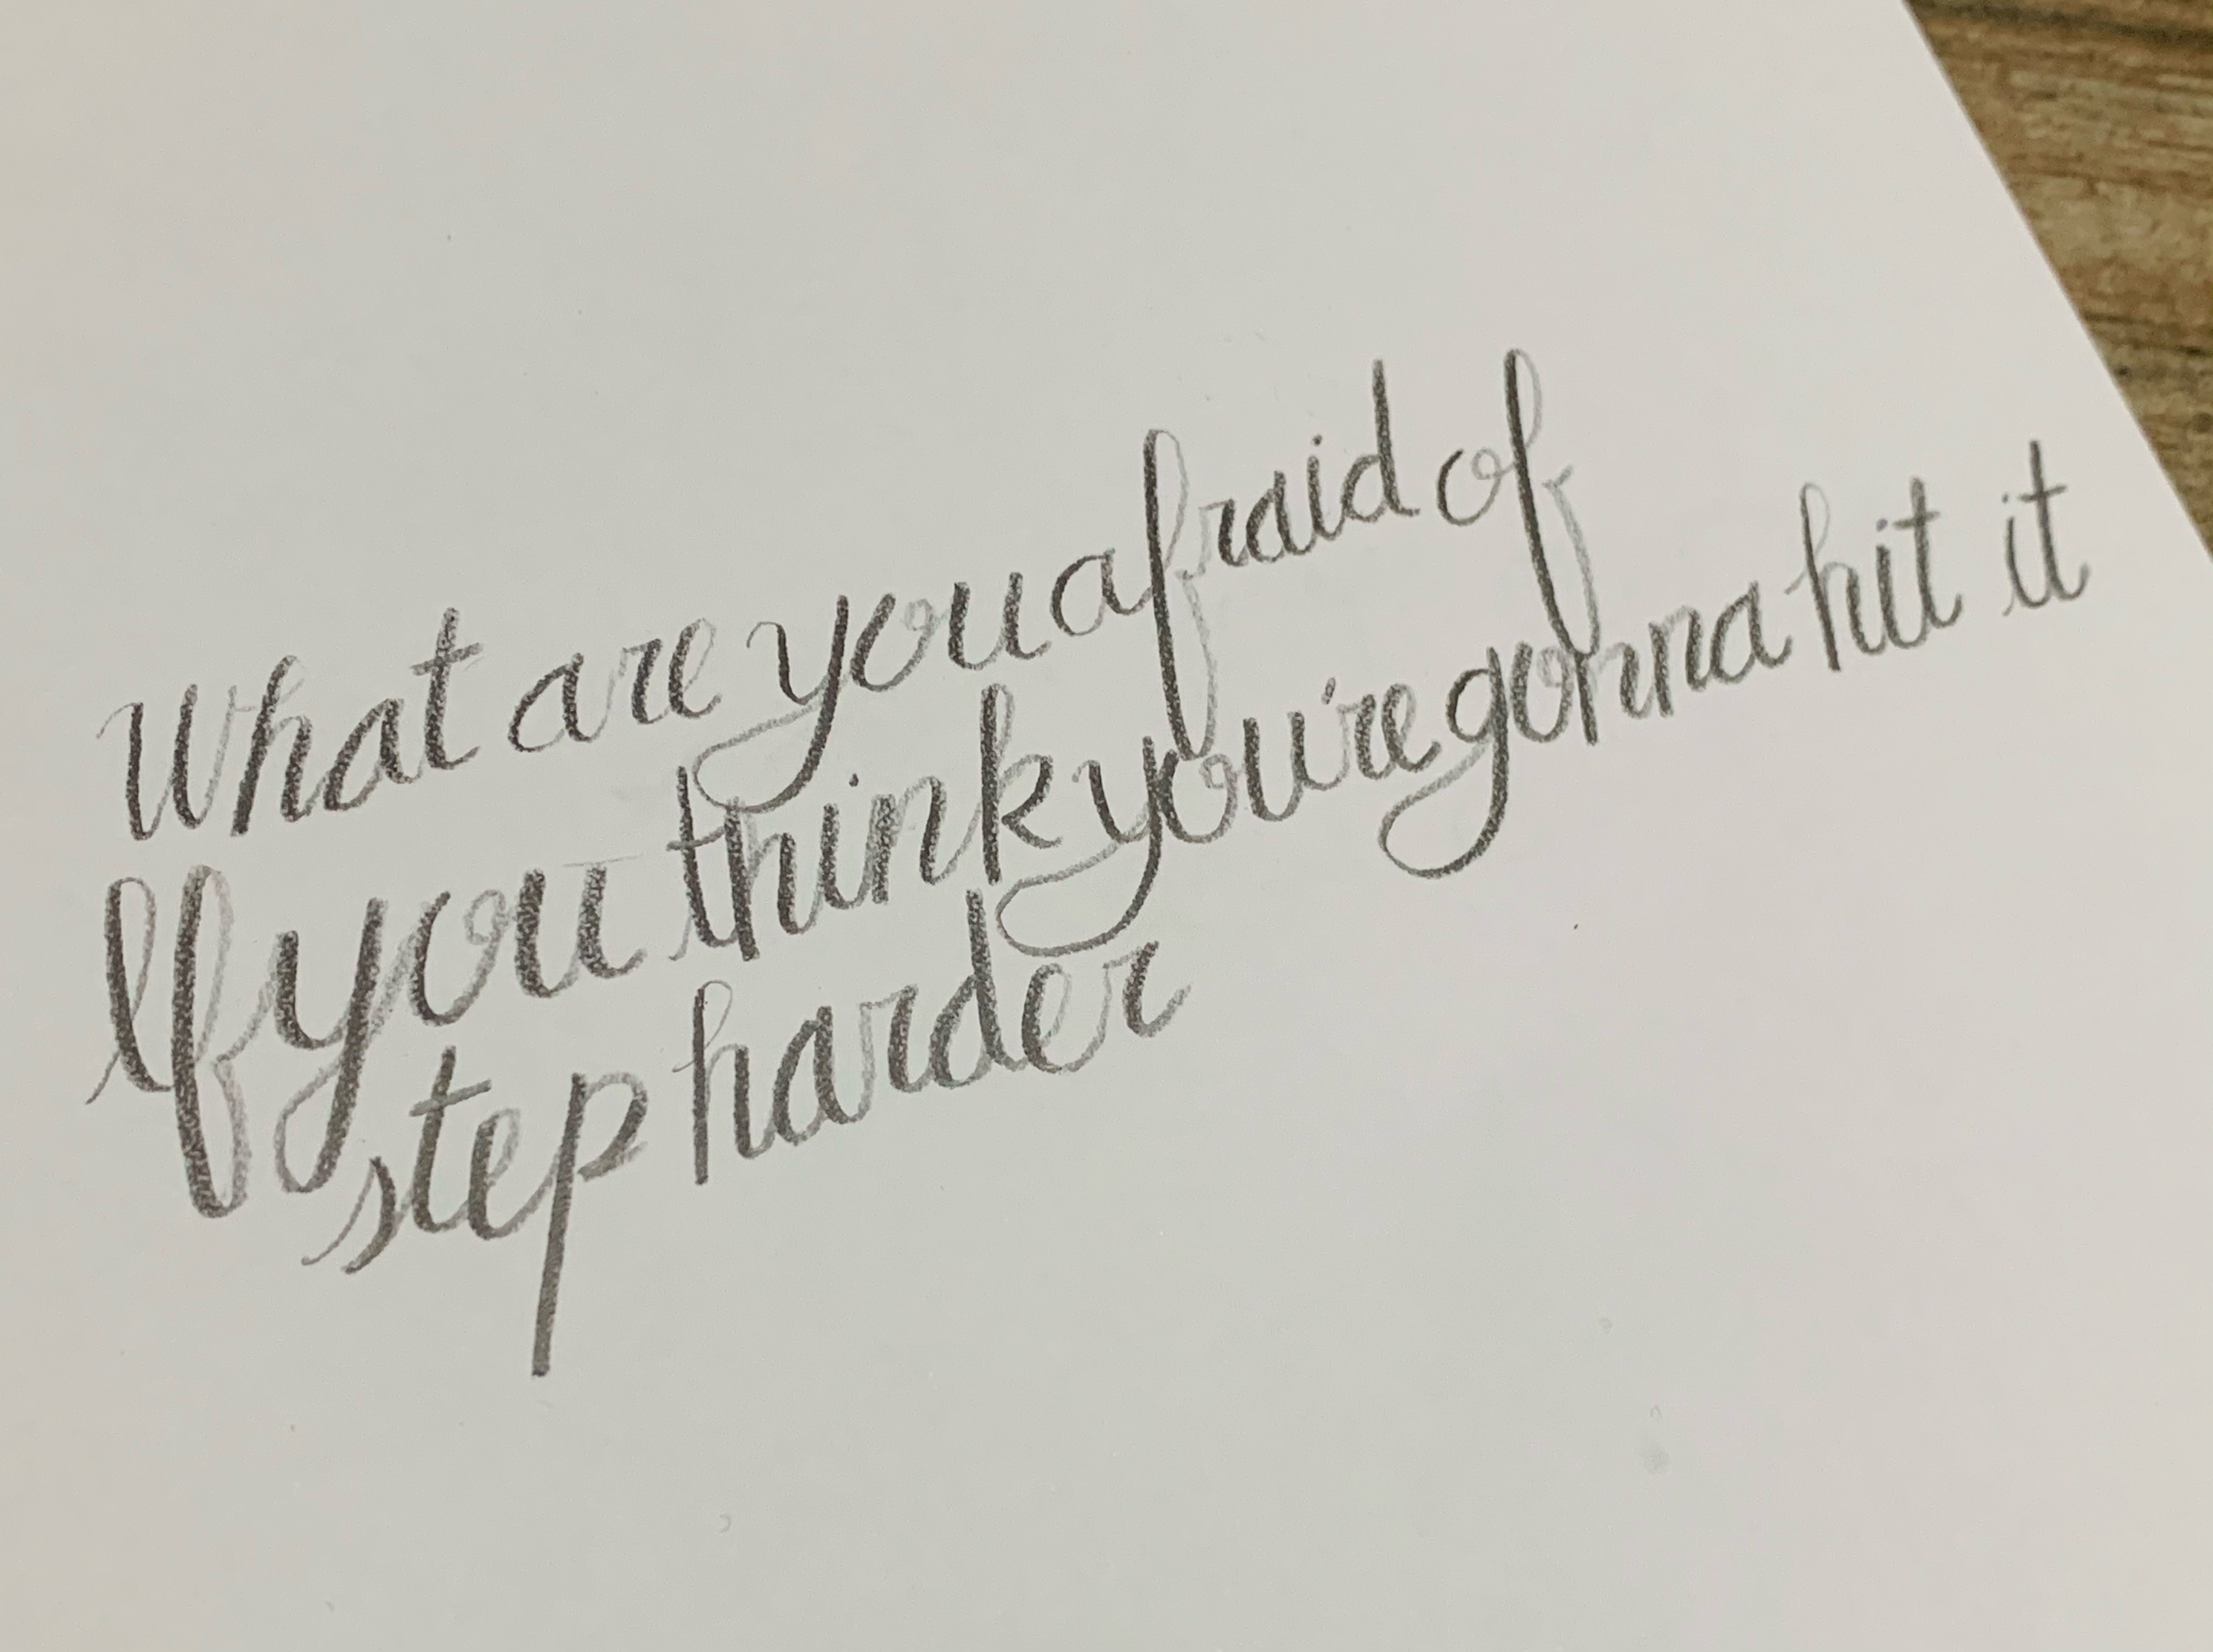 What are you afraid of
If you think you're gonna hit it
step harder